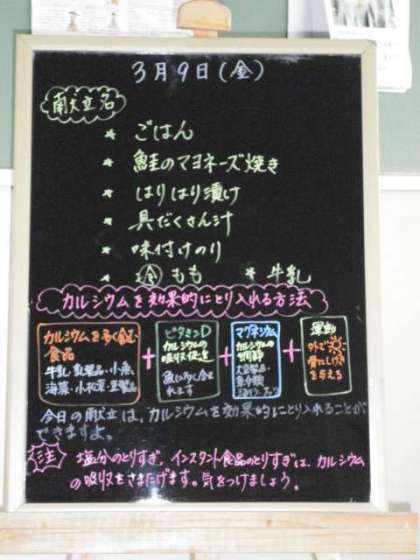 3月9日(金)
献立名
* ごはん
* 鮭のマヨネーズ焼き
* はりはり漬け
* 具だくさん汁
* 味付けのり
* もも * 牛乳
カルシウムを効果的にとり入れる方法
カルシウムを多く含む
食品
牛乳・乳製品・小魚
海藻・小松菜・豆製品
+
ビタミンD
カルシウムの
吸収促進
魚に多く含
まれます
+
マグネシウム
カルシウムの
調節
大豆製品・
魚介類
+
運動
外で
骨にしげき
を与える
今日の献立は、カルシウムを効果的にとり入れることが
できますよ。
注 塩分のとりすぎ、インスタント食品のとりすぎは、カルシウム
の吸収をさまたげます。気をつけましょう。